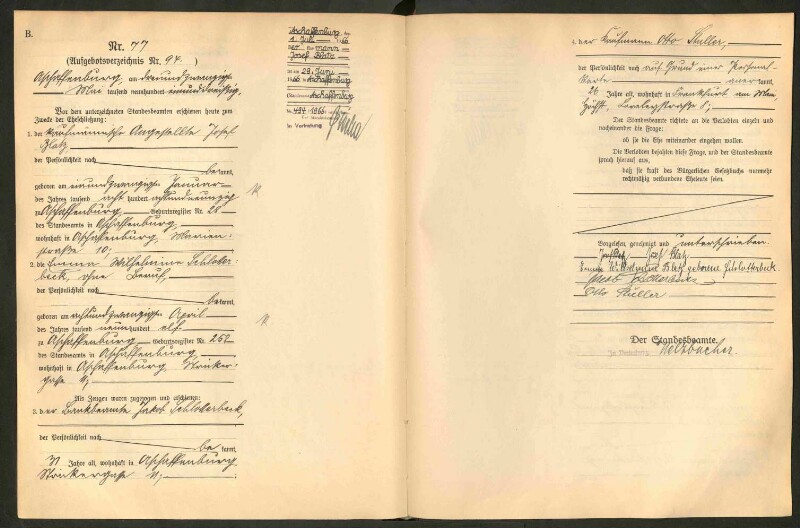 B.
Nr. 77
(Aufgebotsverzeichnis Nr. 94. )
Aschaffenburg, am dreiundzwanzigsten
Mai tausend neunhundert einunddreißig.
Vor dem unterzeichneten Standesbeamten erschienen heute zum
Zwecke der Eheschließung:
1. der kaufmännische Angestellte Josef
Glatz,
der Persönlichkeit nach
bekannt,
geboren am einundzwanzigsten Januar
des Jahres tausend acht hundert achtundneunzig
zu Aschaffenburg, Geburtsregister Nr. 28
des Standesamts in Aschaffenburg,
wohnhaft in Aschaffenburg, Marien-
straße 10;
2. die Emma Wilhelmine Schlotter-
beck, ohne Beruf,
der Persönlichkeit nach
bekannt,
geboren am achtundzwanzigsten April
des Jahres tausend neunhundert elf
zu Aschaffenburg Geburtsregister Nr. 250
des Standesamts in Aschaffenburg
wohnhaft in Aschaffenburg,
gasse
Als Zeugen waren zugezogen und erschienen:
3. der Bankbeamte Jakob Schlotterbeck,
der Persönlichkeit nach
bekannt,
Jahre alt, wohnhaft in Aschaffenburg
Aschaffenburg, den
1. Juli
Der Ehemann
Josef Glatz
ist am 29. Juni
in Aschaffenburg
494/1966
In Vertretung
4. der Kaufmann Otto Stuller,
der Persönlichkeit nach auf Grund einer Personal-
karte anerkannt,
26 Jahre alt, wohnhaft in Frankfurt am Main
Höchst, Loreleystraße
Der Standesbeamte richtete an die Verlobten einzeln und
nacheinander die Frage:
ob sie die Ehe miteinander eingehen wollen.
Die Verlobten bejahten diese Frage, und der Standesbeamte
sprach hierauf aus,
daß sie kraft des Bürgerlichen Gesetzbuchs nunmehr
rechtmäßig verbundene Eheleute seien.
Vorgelesen, genehmigt und unterschrieben.
Josef Glatz
Emma Wilhelmine Glatz geborene Schlotterbeck
Jakob Schlotterbeck
Otto Stuller
Der Standesbeamte.
In Vertretung: Melzbacher.